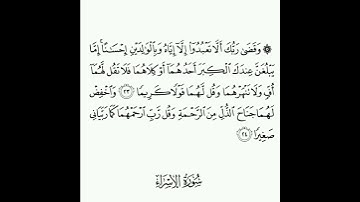 ۞ وَقَضَىٰ رَبُّكَ أَلَّا تَعْبُدُوٓا۟ إِلَّآ إِيَّاهُ وَبِٱلْوَٰلِدَيْنِ إِحْسَٰنًا ۚ إِمَّا
يَبْلُغَنَّ عِندَكَ ٱلْكِبَرَ أَحَدُهُمَآ أَوْ كِلَاهُمَا فَلَا تَقُل لَّهُمَآ
أُفٍّ وَلَا تَنْهَرْهُمَا وَقُل لَّهُمَا قَوْلًا كَرِيمًا ٢٣ وَٱخْفِضْ
لَهُمَا جَنَاحَ ٱلذُّلِّ مِنَ ٱلرَّحْمَةِ وَقُل رَّبِّ ٱرْحَمْهُمَا كَمَا رَبَّيَانِى
صَغِيرًا ٢٤
سُورَةُ الإِسْرَاءِ